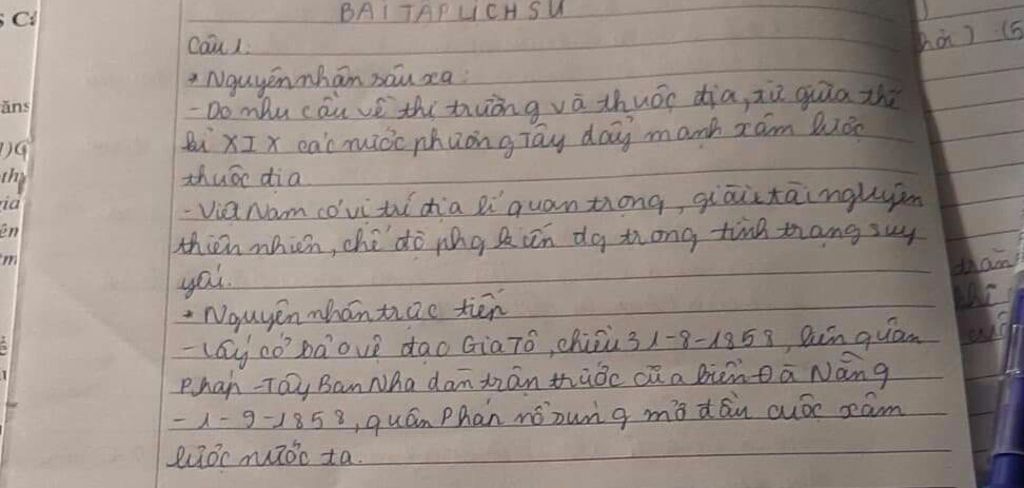 BÀI TẬP LỊCH SỬ
Câu 1:
* Nguyên nhân sâu xa:
- Do nhu cầu về thị trường và thuộc địa, từ giữa thế
kỉ XIX các nước phương Tây đẩy mạnh xâm lược
thuộc địa.
- Việt Nam có vị trí địa lí quan trọng, giàu tài nguyên
thiên nhiên, chế độ phg kiến đg trong tình trạng suy
yếu.
* Nguyên nhân trực tiếp
- Lấy cớ bảo vệ đạo Gia Tô, chiều 31-8-1858, liên quân
Pháp - Tây Ban Nha dàn trận trước cửa biển Đà Nẵng
- 1-9-1858, quân Pháp nổ súng mở đầu cuộc xâm
lược nước ta.